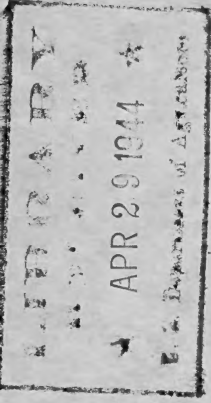 LIBRARY
★ APR 29 1944 ★
U. S. Department of Agriculture